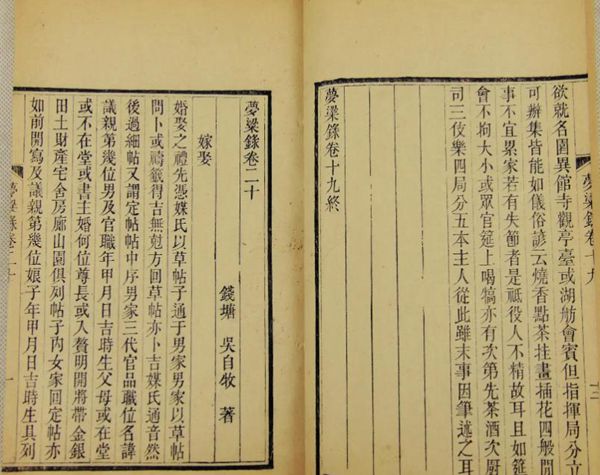 夢粱錄卷十九
十三
欲就名園異館寺觀亭臺或湖舫會賓但指揮局分立
可辦集皆能如儀俗諺云燒香點茶挂畫插花四般閒
事不宜累家若有失節者是祗役人不精故耳且如筵
會不拘大小或眾官筵上喝犒亦有次第先茶酒次厨
司三伎樂四局分五本主人從此雖末事因筆述之耳
夢粱錄卷十九終
夢粱錄卷二十
錢塘 吳自牧 著
嫁娶
婚娶之禮先憑媒氏以草帖子通于男家男家以草帖
問卜或禱籤得吉無尅方回草帖亦卜吉媒氏通音然
後過細帖又謂定帖帖中序男家三代官品職位名諱
議親第幾位男及官職年甲月日吉時生父母或在堂
或不在堂或書主婚何位尊長或入贅明開將帶金銀
田土財產宅舍房廊山園俱列帖子內女家回定帖亦
如前開寫及議親第幾位娘子年甲月日吉時生具列
夢粱錄卷二十
一